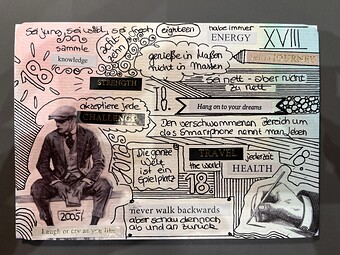 Sei jung, sei wild, sei
18
sammle
knowledge
STRENGTH
eighteen
habe immer
ENERGY
XVIII
genieße in Maßen
nicht in Massen
JOURNEY
sei nett - aber nicht
zu nett
18.
Hang on to your dreams
akzeptiere jede
CHALLENGE
Den verschwommenen Bereich um
das Smartphone nennt man Leben
Die ganze
Welt
ist ein
Spielplatz
TRAVEL
the world!
jederzeit
HEALTH
18
2005
Laugh or cry as you like
never walk backwards
aber schau dennoch
ab und an zurück